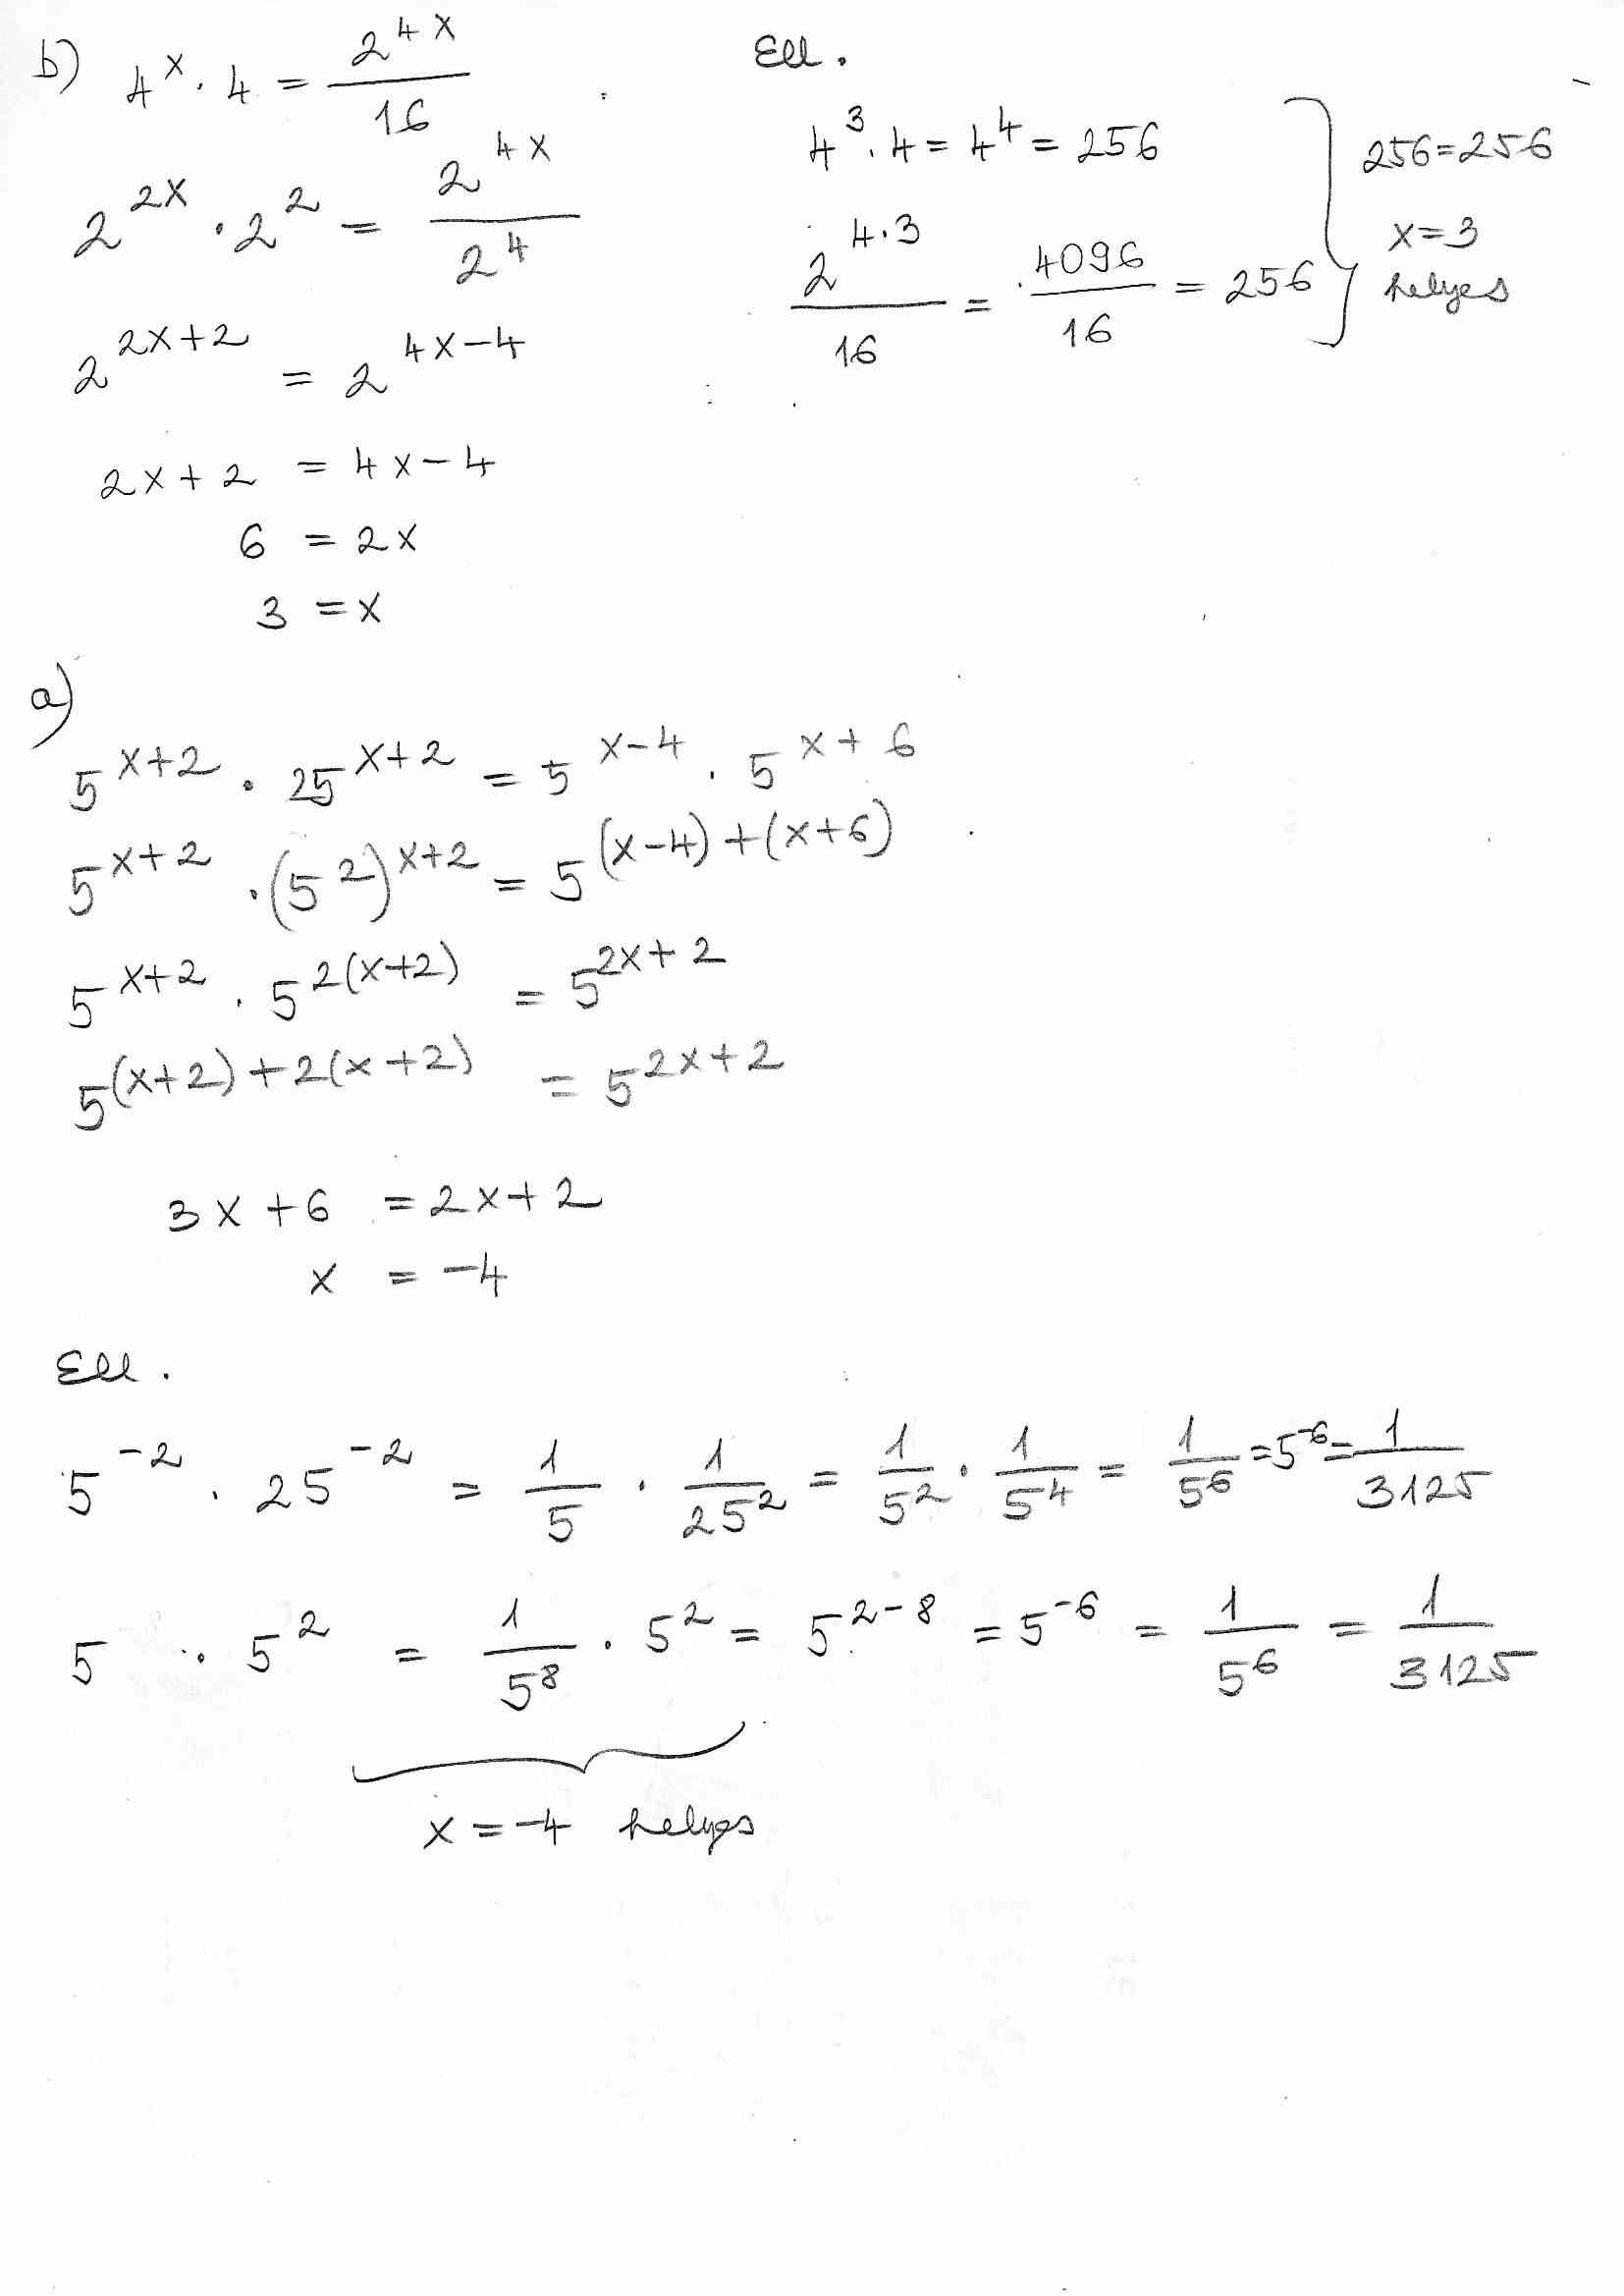 b) 4^x · 4 = 2^{4x}/16
2^{2x} · 2^2 = 2^{4x}/2^4
2^{2x+2} = 2^{4x-4}
2x+2 = 4x-4
6 = 2x
3 = x
Ell.
4^3 · 4 = 4^4 = 256
2^{4·3}/16 = 4096/16 = 256
256=256
x=3
helyes
a)
5^{x+2} · 25^{x+2} = 5^{x-4} · 5^{x+6}
5^{x+2} · (5^2)^{x+2} = 5^{(x-4)+(x+6)}
5^{x+2} · 5^{2(x+2)} = 5^{2x+2}
5^{(x+2)+2(x+2)} = 5^{2x+2}
3x+6 = 2x+2
x = -4
Ell.
5^{-2} · 25^{-2} = 1/5 · 1/25^2 = 1/5^2 · 1/5^4 = 1/5^6 = 5^{-6} = 1/3125
5 · 5^2 = 1/5^8 · 5^2 = 5^{2-8} = 5^{-6} = 1/5^6 = 1/3125
x = -4 helyes